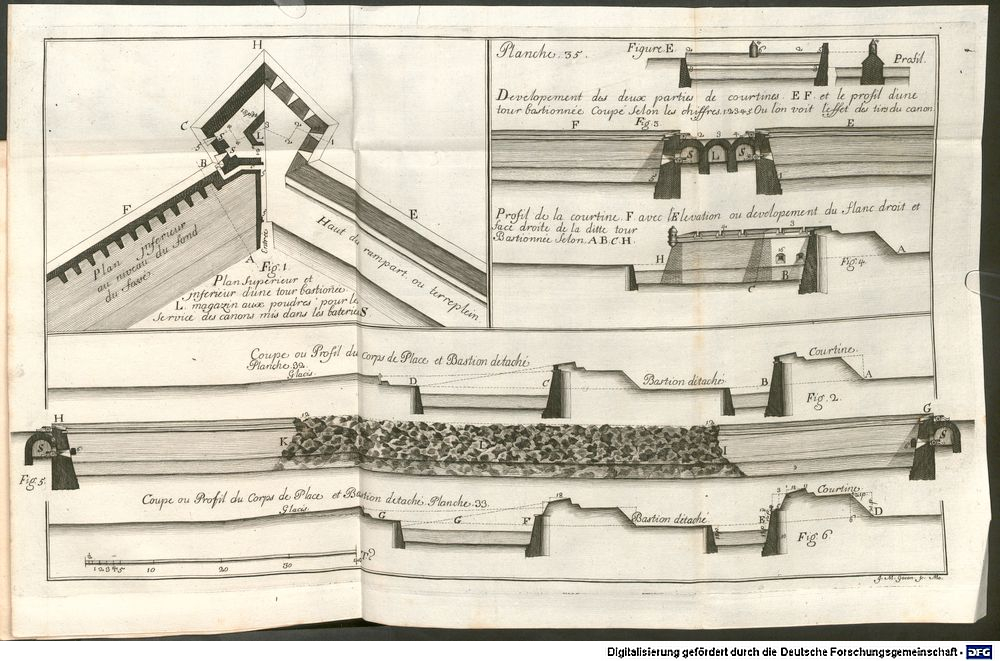 H
C
L
B
F
E
A
Plan inferieur
au niveau du fond
du fossé
Haut du rampart ou terreplein
Entrée
Fig. 1.
Plan Superieur et
inferieur d'une tour bastionée
L. magazin aux poudres pour le
Service des canons mis dans les bateries
Planche. 35.
Figure E.
Profil.
Developement des deux parties de courtines. E F. et le profil d'une
tour bastionnée Coupé Selon les chiffres. 1 2 3 4 5 Ou l'on voit l'effet des tirs du canon
F
Fig. 3.
E
S L S
Profil de la courtine. F avec l'Elevation ou developement du flanc droit et
face droite de la ditte tour
Bastionnée Selon. A.B.C.H.
H
B
C
A
Fig. 4.
Coupe ou Profil du corps de Place et Bastion detaché
Planche. 32.
Glacis.
D
C
Bastion detaché
B
Courtine.
A
Fig. 2.
H
S
K
L
I
G
S
Fig. 5.
Coupe ou Profil du Corps de Place et Bastion detaché. Planche. 33.
Glacis.
G
G
F
12
Bastion detaché
E
Courtine
D
Fig. 6.
1 2 3 4 5 10 20 30
J. M. Gocen sc. Mo.
Digitalisierung gefördert durch die Deutsche Forschungsgemeinschaft - DFG